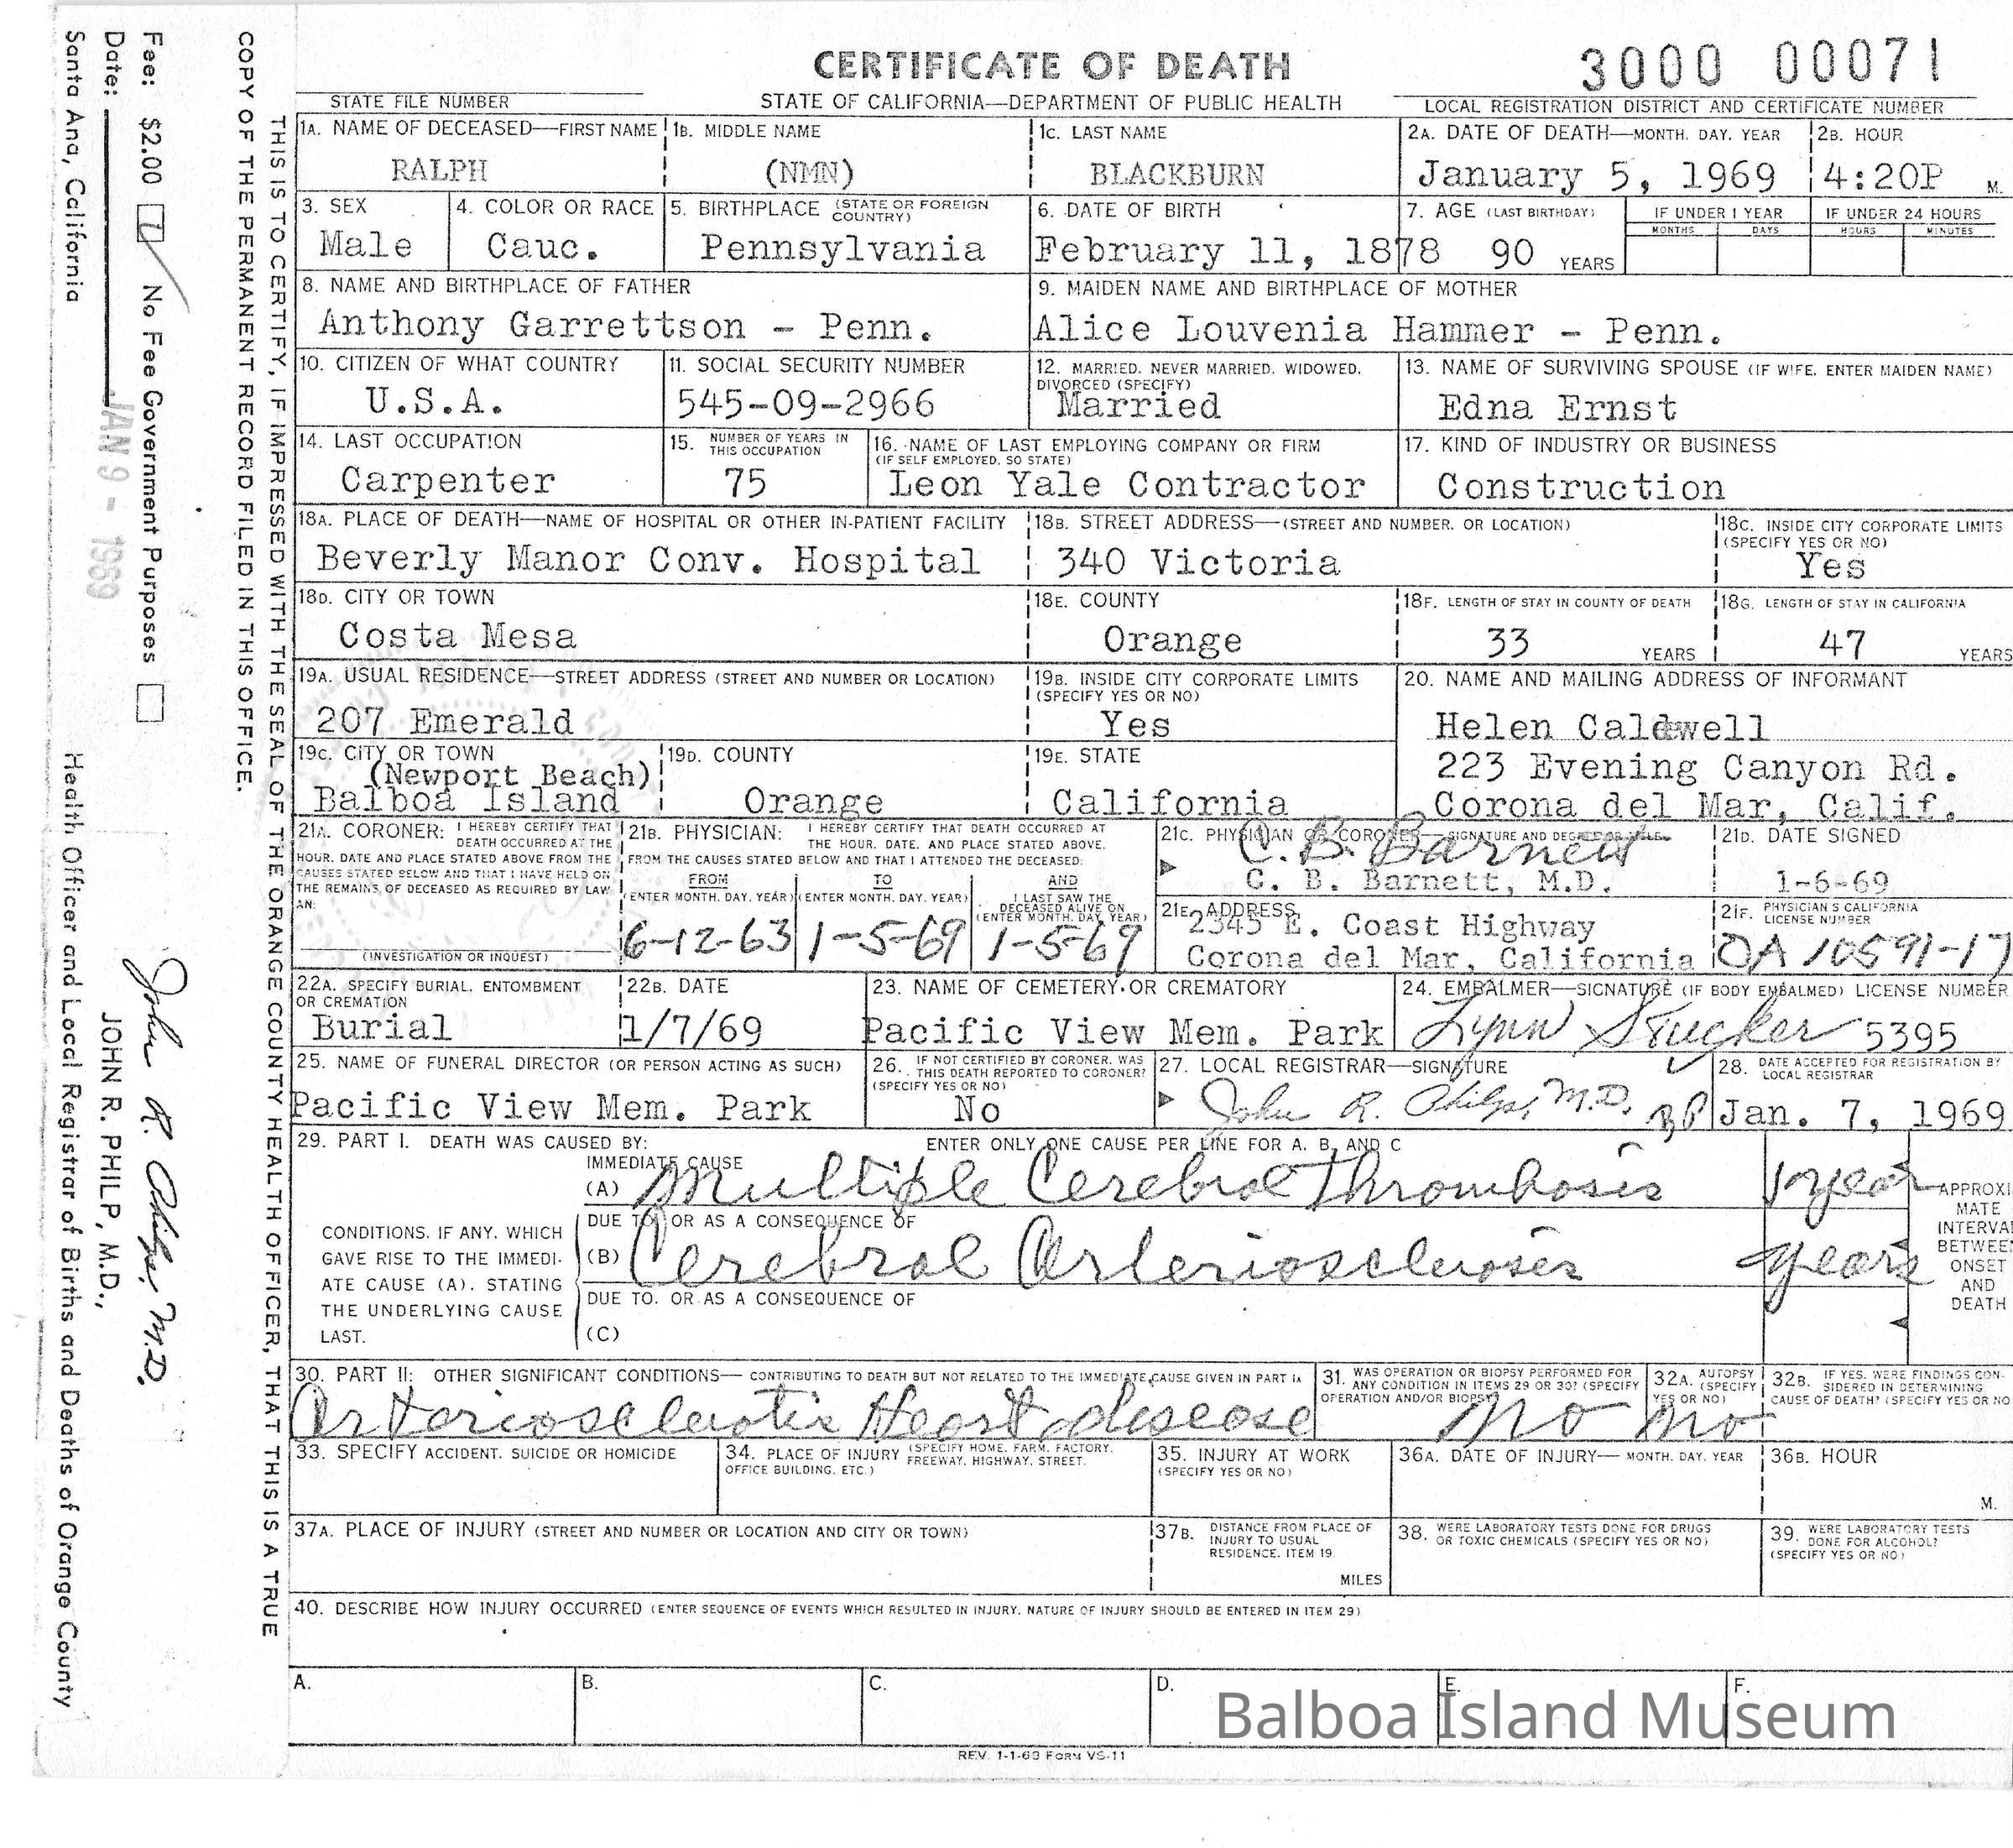 CERTIFICATE OF DEATH
3000 00071
STATE FILE NUMBER
STATE OF CALIFORNIA—DEPARTMENT OF PUBLIC HEALTH
LOCAL REGISTRATION DISTRICT AND CERTIFICATE NUMBER
1A. NAME OF DECEASED—FIRST NAME
RALPH
1B. MIDDLE NAME
(NMN)
1C. LAST NAME
BLACKBURN
2A. DATE OF DEATH—MONTH, DAY, YEAR
January 5, 1969
2B. HOUR
4:20P M.
3. SEX
Male
4. COLOR OR RACE
Cauc.
5. BIRTHPLACE (STATE OR FOREIGN COUNTRY)
Pennsylvania
6. DATE OF BIRTH
February 11, 1878
7. AGE (LAST BIRTHDAY)
90 YEARS
IF UNDER 1 YEAR
MONTHS DAYS
IF UNDER 24 HOURS
HOURS MINUTES
8. NAME AND BIRTHPLACE OF FATHER
Anthony Garrettson - Penn.
9. MAIDEN NAME AND BIRTHPLACE OF MOTHER
Alice Louvenia Hammer - Penn.
10. CITIZEN OF WHAT COUNTRY
U.S.A.
11. SOCIAL SECURITY NUMBER
545-09-2966
12. MARRIED, NEVER MARRIED, WIDOWED,
DIVORCED (SPECIFY)
Married
13. NAME OF SURVIVING SPOUSE (IF WIFE, ENTER MAIDEN NAME)
Edna Ernst
14. LAST OCCUPATION
Carpenter
15. NUMBER OF YEARS IN
THIS OCCUPATION
75
16. NAME OF LAST EMPLOYING COMPANY OR FIRM
(IF SELF EMPLOYED, SO STATE)
Leon Yale Contractor
17. KIND OF INDUSTRY OR BUSINESS
Construction
18A. PLACE OF DEATH—NAME OF HOSPITAL OR OTHER IN-PATIENT FACILITY
Beverly Manor Conv. Hospital
18B. STREET ADDRESS—(STREET AND NUMBER, OR LOCATION)
340 Victoria
18C. INSIDE CITY CORPORATE LIMITS
(SPECIFY YES OR NO)
Yes
18D. CITY OR TOWN
Costa Mesa
18E. COUNTY
Orange
18F. LENGTH OF STAY IN COUNTY OF DEATH
33 YEARS
18G. LENGTH OF STAY IN CALIFORNIA
47 YEARS
19A. USUAL RESIDENCE—STREET ADDRESS (STREET AND NUMBER OR LOCATION)
207 Emerald
19B. INSIDE CITY CORPORATE LIMITS
(SPECIFY YES OR NO)
Yes
20. NAME AND MAILING ADDRESS OF INFORMANT
Helen Caldwell
223 Evening Canyon Rd.
Corona del Mar, Calif.
19C. CITY OR TOWN
(Newport Beach)
Balboa Island
19D. COUNTY
Orange
19E. STATE
California
21A. CORONER: I HEREBY CERTIFY THAT
DEATH OCCURRED AT THE
HOUR, DATE AND PLACE STATED ABOVE FROM THE
CAUSES STATED BELOW AND THAT I HAVE HELD ON
THE REMAINS OF DECEASED AS REQUIRED BY LAW
AN:
(INVESTIGATION OR INQUEST)
21B. PHYSICIAN: I HEREBY CERTIFY THAT DEATH OCCURRED AT
THE HOUR, DATE, AND PLACE STATED ABOVE,
FROM THE CAUSES STATED BELOW AND THAT I ATTENDED THE DECEASED:
FROM
(ENTER MONTH, DAY, YEAR)
6-12-63
TO
(ENTER MONTH, DAY, YEAR)
1-5-69
AND
I LAST SAW THE
DECEASED ALIVE ON
(ENTER MONTH, DAY, YEAR)
1-5-69
21C. PHYSICIAN OR CORONER—SIGNATURE AND DEGREE OR TITLE
C. B. Barnett
C. B. Barnett, M.D.
21D. DATE SIGNED
1-6-69
21E. ADDRESS
2345 E. Coast Highway
Corona del Mar, California
21F. PHYSICIAN'S CALIFORNIA
LICENSE NUMBER
OA 10591-17
22A. SPECIFY BURIAL, ENTOMBMENT
OR CREMATION
Burial
22B. DATE
1/7/69
23. NAME OF CEMETERY OR CREMATORY
Pacific View Mem. Park
24. EMBALMER—SIGNATURE (IF BODY EMBALMED) LICENSE NUMBER
Lynn Stucker 5395
25. NAME OF FUNERAL DIRECTOR (OR PERSON ACTING AS SUCH)
Pacific View Mem. Park
26. IF NOT CERTIFIED BY CORONER, WAS
THIS DEATH REPORTED TO CORONER?
(SPECIFY YES OR NO)
No
27. LOCAL REGISTRAR—SIGNATURE
John R. Philp, M.D.
28. DATE ACCEPTED FOR REGISTRATION BY
LOCAL REGISTRAR
Jan. 7, 1969
29. PART I. DEATH WAS CAUSED BY: ENTER ONLY ONE CAUSE PER LINE FOR A, B, AND C
IMMEDIATE CAUSE
(A) Multiple Cerebral Thrombosis 1 year
DUE TO, OR AS A CONSEQUENCE OF
(B) Cerebral Arteriosclerosis years
DUE TO, OR AS A CONSEQUENCE OF
(C)
CONDITIONS, IF ANY, WHICH
GAVE RISE TO THE IMMEDI-
ATE CAUSE (A), STATING
THE UNDERLYING CAUSE
LAST.
APPROXI
MATE
INTERVAL
BETWEEN
ONSET
AND
DEATH
30. PART II: OTHER SIGNIFICANT CONDITIONS—CONTRIBUTING TO DEATH BUT NOT RELATED TO THE IMMEDIATE CAUSE GIVEN IN PART IA
Arteriosclerotic Heart disease
31. WAS OPERATION OR BIOPSY PERFORMED FOR
ANY CONDITION IN ITEMS 29 OR 30? (SPECIFY
OPERATION AND/OR BIOPSY)
No
32A. AUTOPSY
(SPECIFY
YES OR NO)
No
32B. IF YES, WERE FINDINGS CON-
SIDERED IN DETERMINING
CAUSE OF DEATH? (SPECIFY YES OR NO
33. SPECIFY ACCIDENT, SUICIDE OR HOMICIDE
34. PLACE OF INJURY (SPECIFY HOME, FARM, FACTORY,
FREEWAY, HIGHWAY, STREET,
OFFICE BUILDING, ETC.)
35. INJURY AT WORK
(SPECIFY YES OR NO)
36A. DATE OF INJURY—MONTH, DAY, YEAR
36B. HOUR
M.
37A. PLACE OF INJURY (STREET AND NUMBER OR LOCATION AND CITY OR TOWN)
37B. DISTANCE FROM PLACE OF
INJURY TO USUAL
RESIDENCE, ITEM 19
MILES
38. WERE LABORATORY TESTS DONE FOR DRUGS
OR TOXIC CHEMICALS (SPECIFY YES OR NO)
39. WERE LABORATORY TESTS
DONE FOR ALCOHOL?
(SPECIFY YES OR NO)
40. DESCRIBE HOW INJURY OCCURRED (ENTER SEQUENCE OF EVENTS WHICH RESULTED IN INJURY, NATURE OF INJURY SHOULD BE ENTERED IN ITEM 29)
A. B. C. D. E. F.
Balboa Island Museum
REV. 1-1-68 FORM VS-11
THIS IS TO CERTIFY, IF IMPRESSED WITH THE SEAL OF THE ORANGE COUNTY HEALTH OFFICER, THAT THIS IS A TRUE
COPY OF THE PERMANENT RECORD FILED IN THIS OFFICE.
Fee: $2.00 No Fee Government Purposes
John R. Philp, M.D.
Date: JAN 9 - 1969
JOHN R. PHILP, M.D.,
Santa Ana, California
Health Officer and Local Registrar of Births and Deaths of Orange County